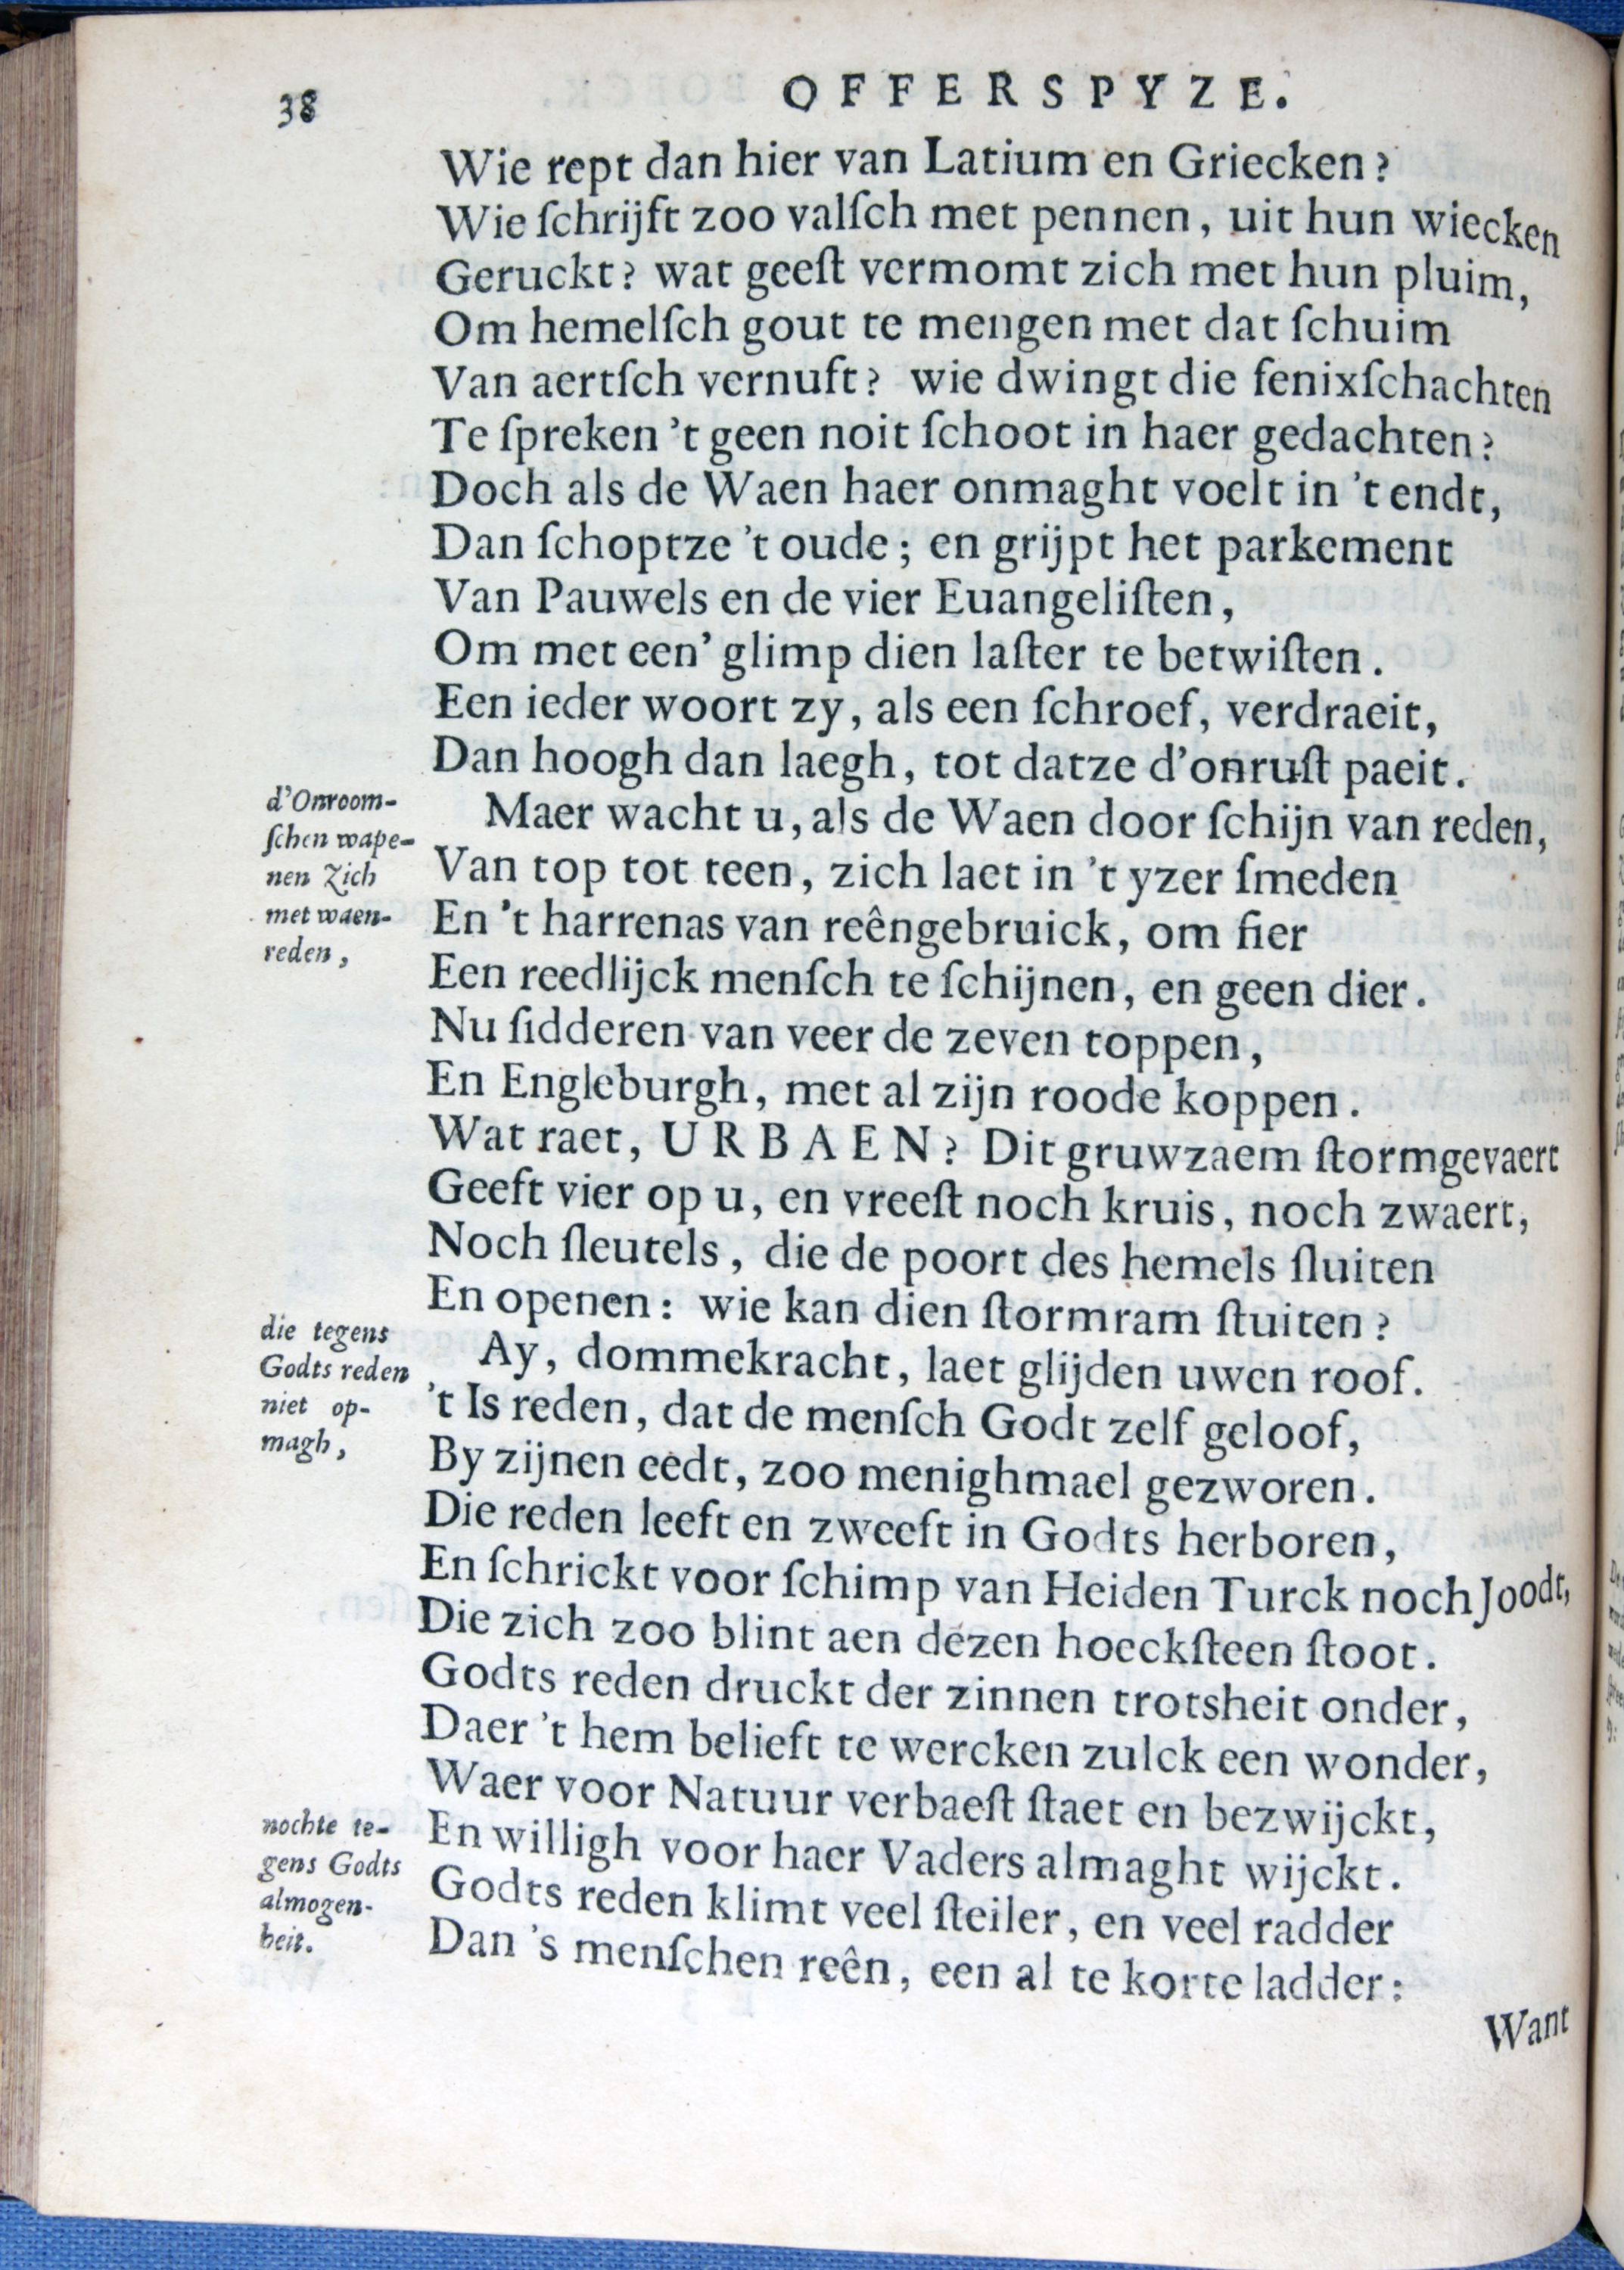 38
OFFERSPYZE.
Wie rept dan hier van Latium en Griecken?
Wie ſchrijft zoo valſch met pennen, uit hun wiecken
Geruckt? wat geeſt vermomt zich met hun pluim,
Om hemelſch gout te mengen met dat ſchuim
Van aertſch vernuft? wie dwingt die fenixſchachten
Te ſpreken 't geen noit ſchoot in haer gedachten?
Doch als de Waen haer onmaght voelt in 't endt,
Dan ſchoptze 't oude; en grijpt het parkement
Van Pauwels en de vier Euangeliſten,
Om met een' glimp dien laſter te betwiſten.
Een ieder woort zy, als een ſchroef, verdraeit,
Dan hoogh dan laegh, tot datze d'onruſt paeit.
d'Onroom-
ſchen wape-
nen Zich
met waen-
reden,
Maer wacht u, als de Waen door ſchijn van reden,
Van top tot teen, zich laet in 't yzer ſmeden
En 't harrenas van reêngebruick, om fier
Een reedlijck menſch te ſchijnen, en geen dier.
Nu ſidderen van veer de zeven toppen,
En Engleburgh, met al zijn roode koppen.
Wat raet, URBAEN? Dit gruwzaem ſtormgevaert
Geeft vier op u, en vreeſt noch kruis, noch zwaert,
Noch ſleutels, die de poort des hemels ſluiten
En openen: wie kan dien ſtormram ſtuiten?
die tegens
Godts reden
niet op-
magh,
Ay, dommekracht, laet glijden uwen roof.
't Is reden, dat de menſch Godt zelf geloof,
By zijnen eedt, zoo menighmael gezworen.
Die reden leeft en zweeft in Godts herboren,
En ſchrickt voor ſchimp van Heiden Turck noch Joodt,
Die zich zoo blint aen dezen hoeckſteen ſtoot.
Godts reden druckt der zinnen trotsheit onder,
Daer 't hem belieft te wercken zulck een wonder,
Waer voor Natuur verbaeſt ſtaet en bezwijckt,
En willigh voor haer Vaders almaght wijckt.
nochte te-
gens Godts
almogen-
heit.
Godts reden klimt veel ſteiler, en veel radder
Dan 's menſchen reên, een al te korte ladder:
Want